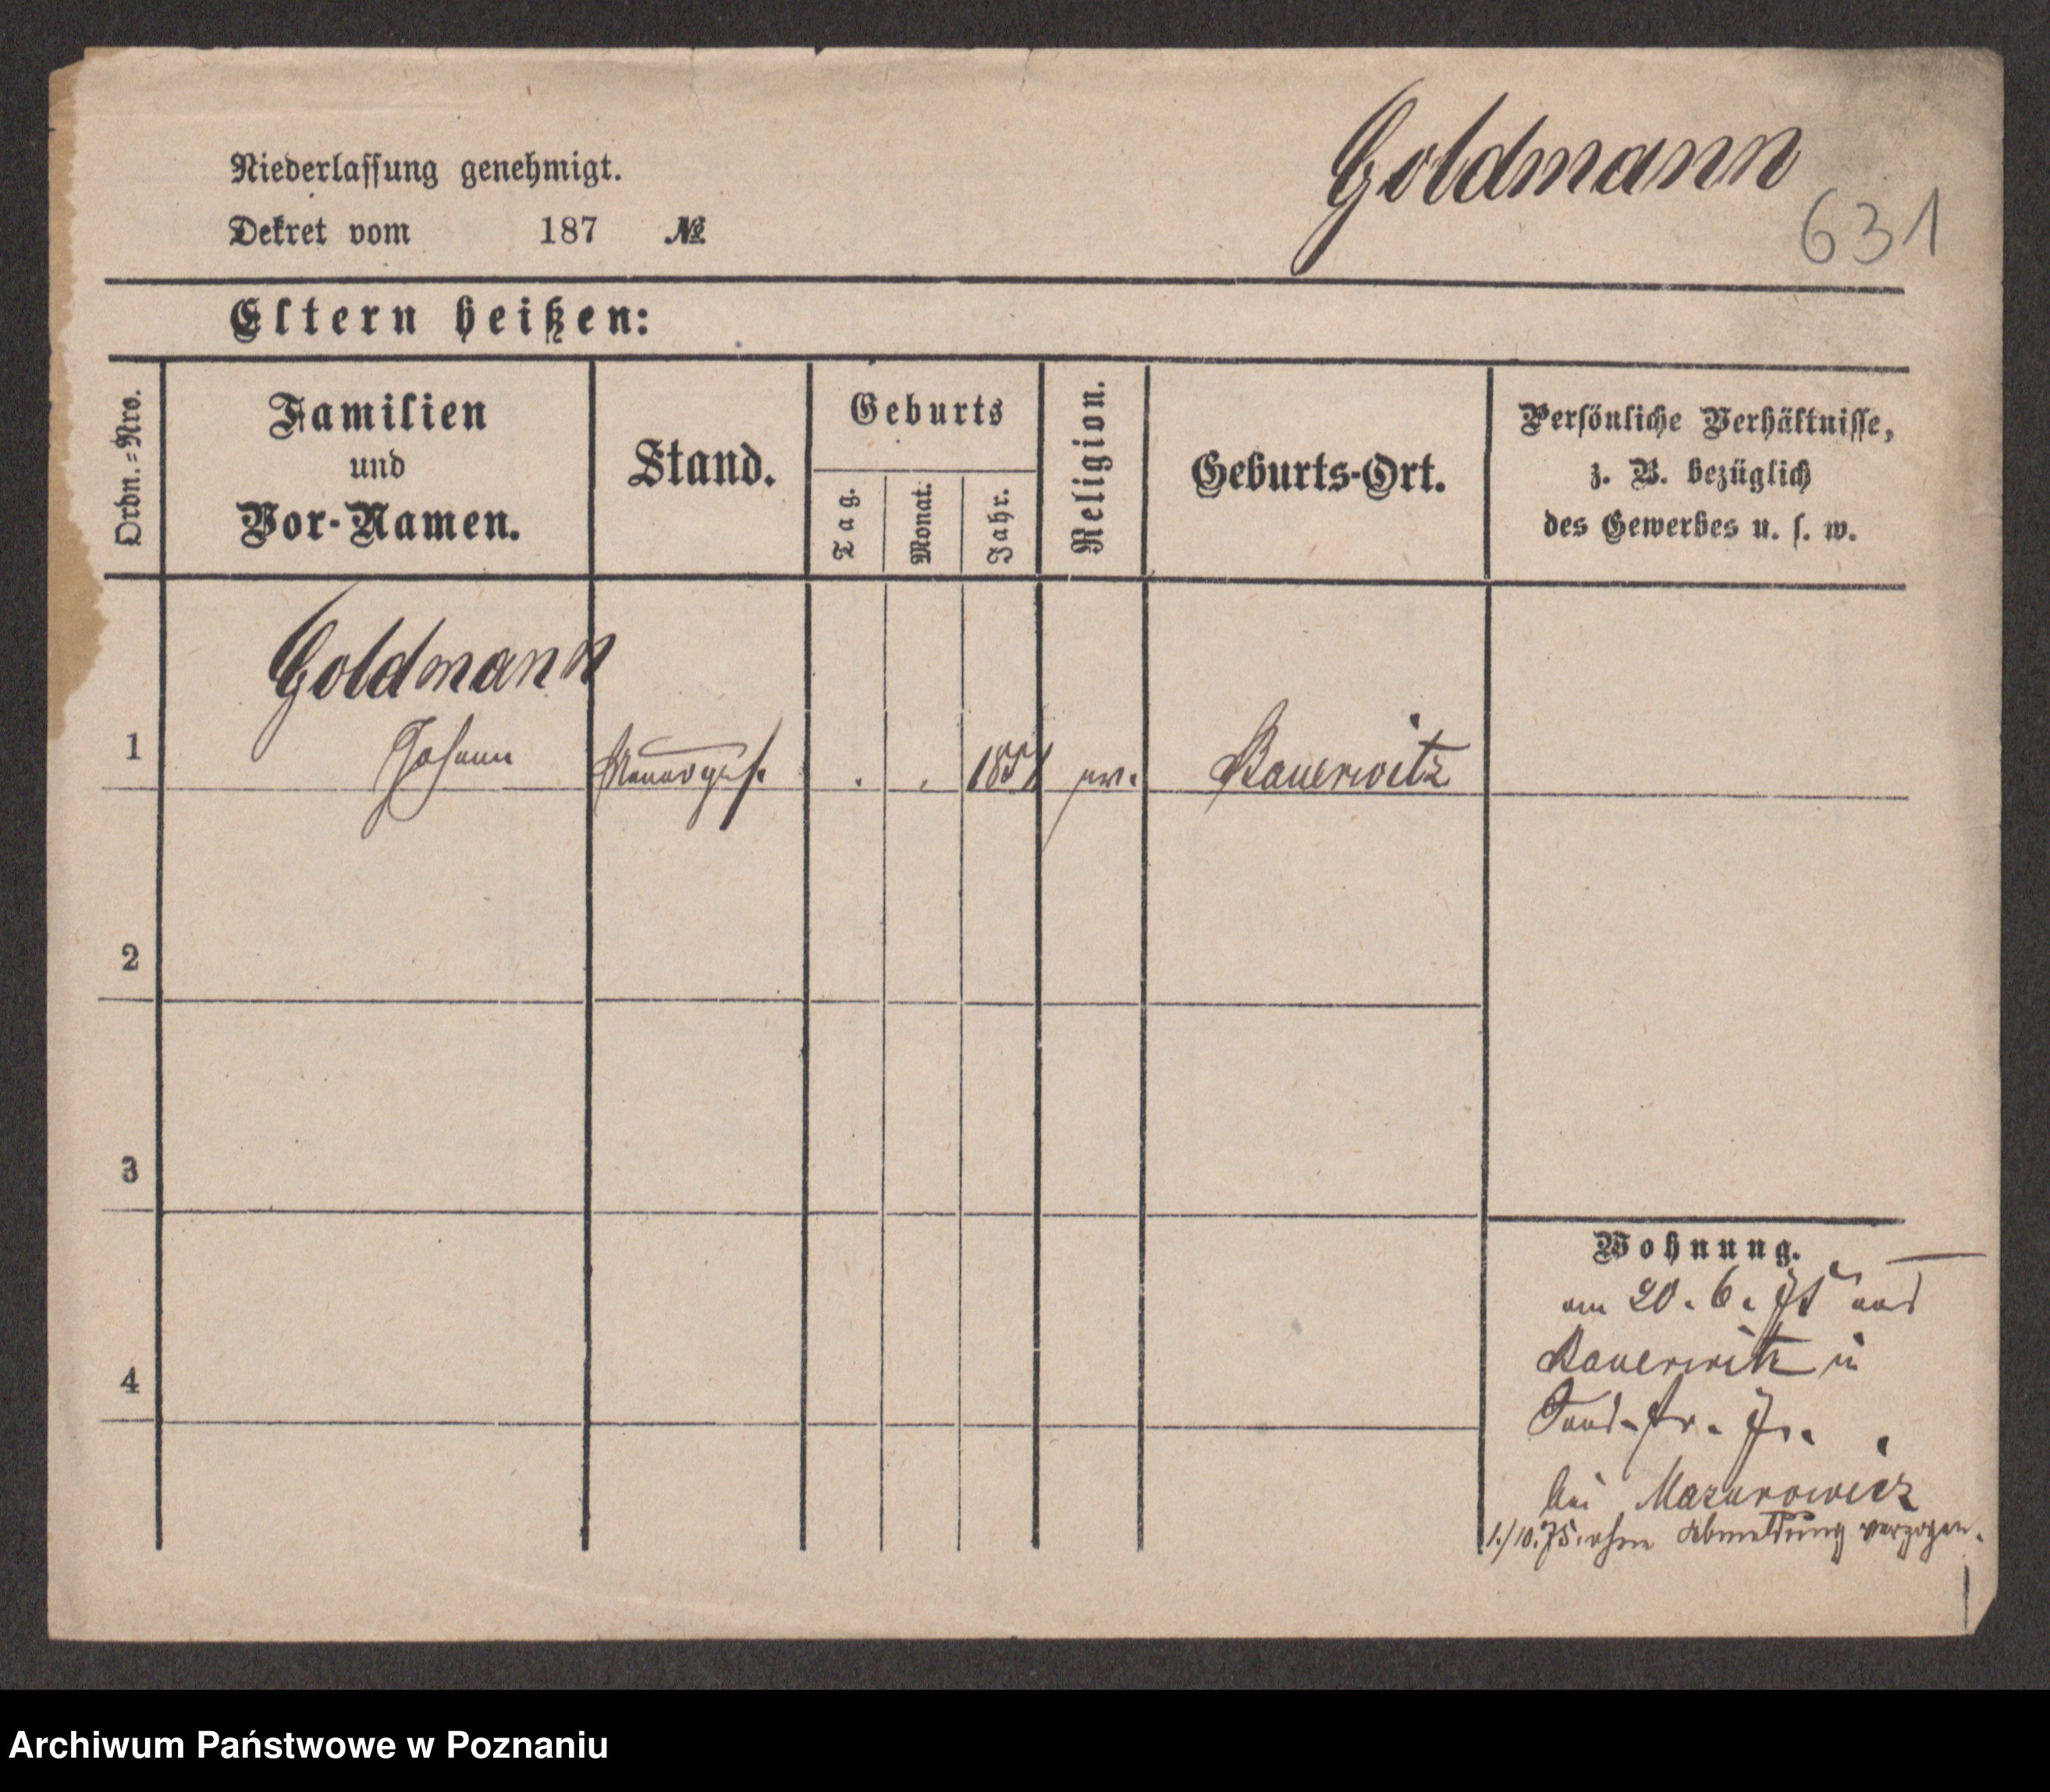 Niederlassung genehmigt.
Dekret vom 187 №
Goldmann
631
Eltern heißen:
Ordn.=Nro.
Familien
und
Vor-Namen.
Stand.
Geburts
Tag.
Monat.
Jahr.
Religion.
Geburts-Ort.
Persönliche Verhältnisse,
z. B. bezüglich
des Gewerbes u. s. w.
Goldmann
1 Johann 1851 Bauerwitz
2
3
4
Wohnung.
am 20. 6. 75 aus
Bauerwitz in
bei Mazurowicz
1./10.75. ohne Abmeldung verzogen.
Archiwum Państwowe w Poznaniu